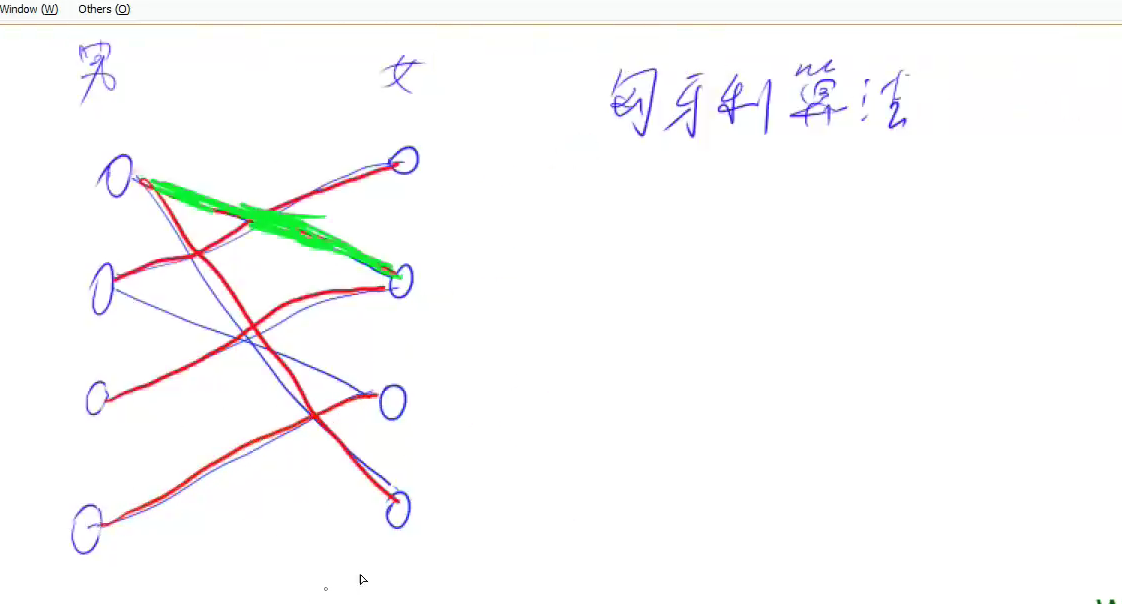 Window (W) Others (O)
男 女
匈牙利算法